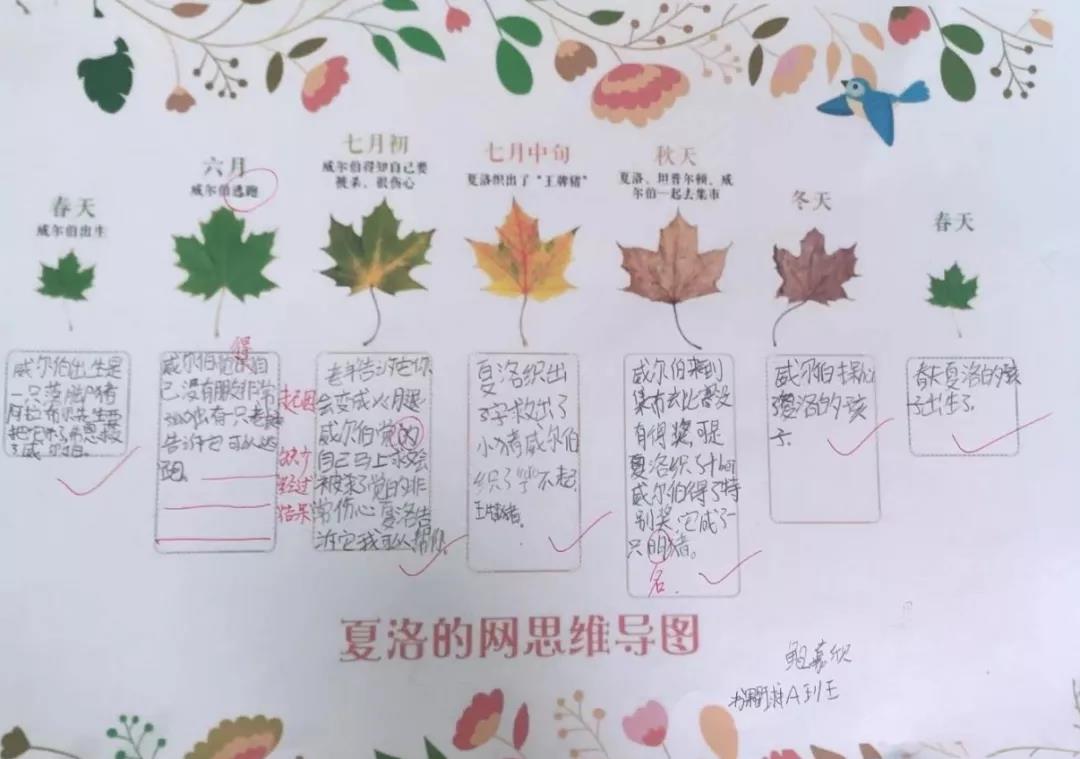 春天
威尔伯出生
六月
威尔伯逃跑
七月初
威尔伯得知自己要
被杀，很伤心
七月中旬
夏洛织出了“王牌猪”
秋天
夏洛、坦普尔顿、威
尔伯一起去集市
冬天
春天
威尔伯出生是
一只落脚猪
威尔伯觉得自
己没有朋友非常
有一只老
告诉它可以逃
跑。
起因
缺少
经过
结果
老羊告诉它你
会变成火腿
威尔伯觉的
自己马上就会
被杀了觉的非
常伤心夏洛告
诉它我可以帮你
夏洛织出
了字救出了
小猪威尔伯
织了 了不起,
王牌猪。
威尔伯来到
集市去比赛没
有得奖,可是
夏洛织了
威尔伯得了特
别奖,它成了一
只明猪。
名.
威尔伯
了夏洛的孩
子.
春天夏洛的孩
子出生了.
夏洛的网思维导图
A班